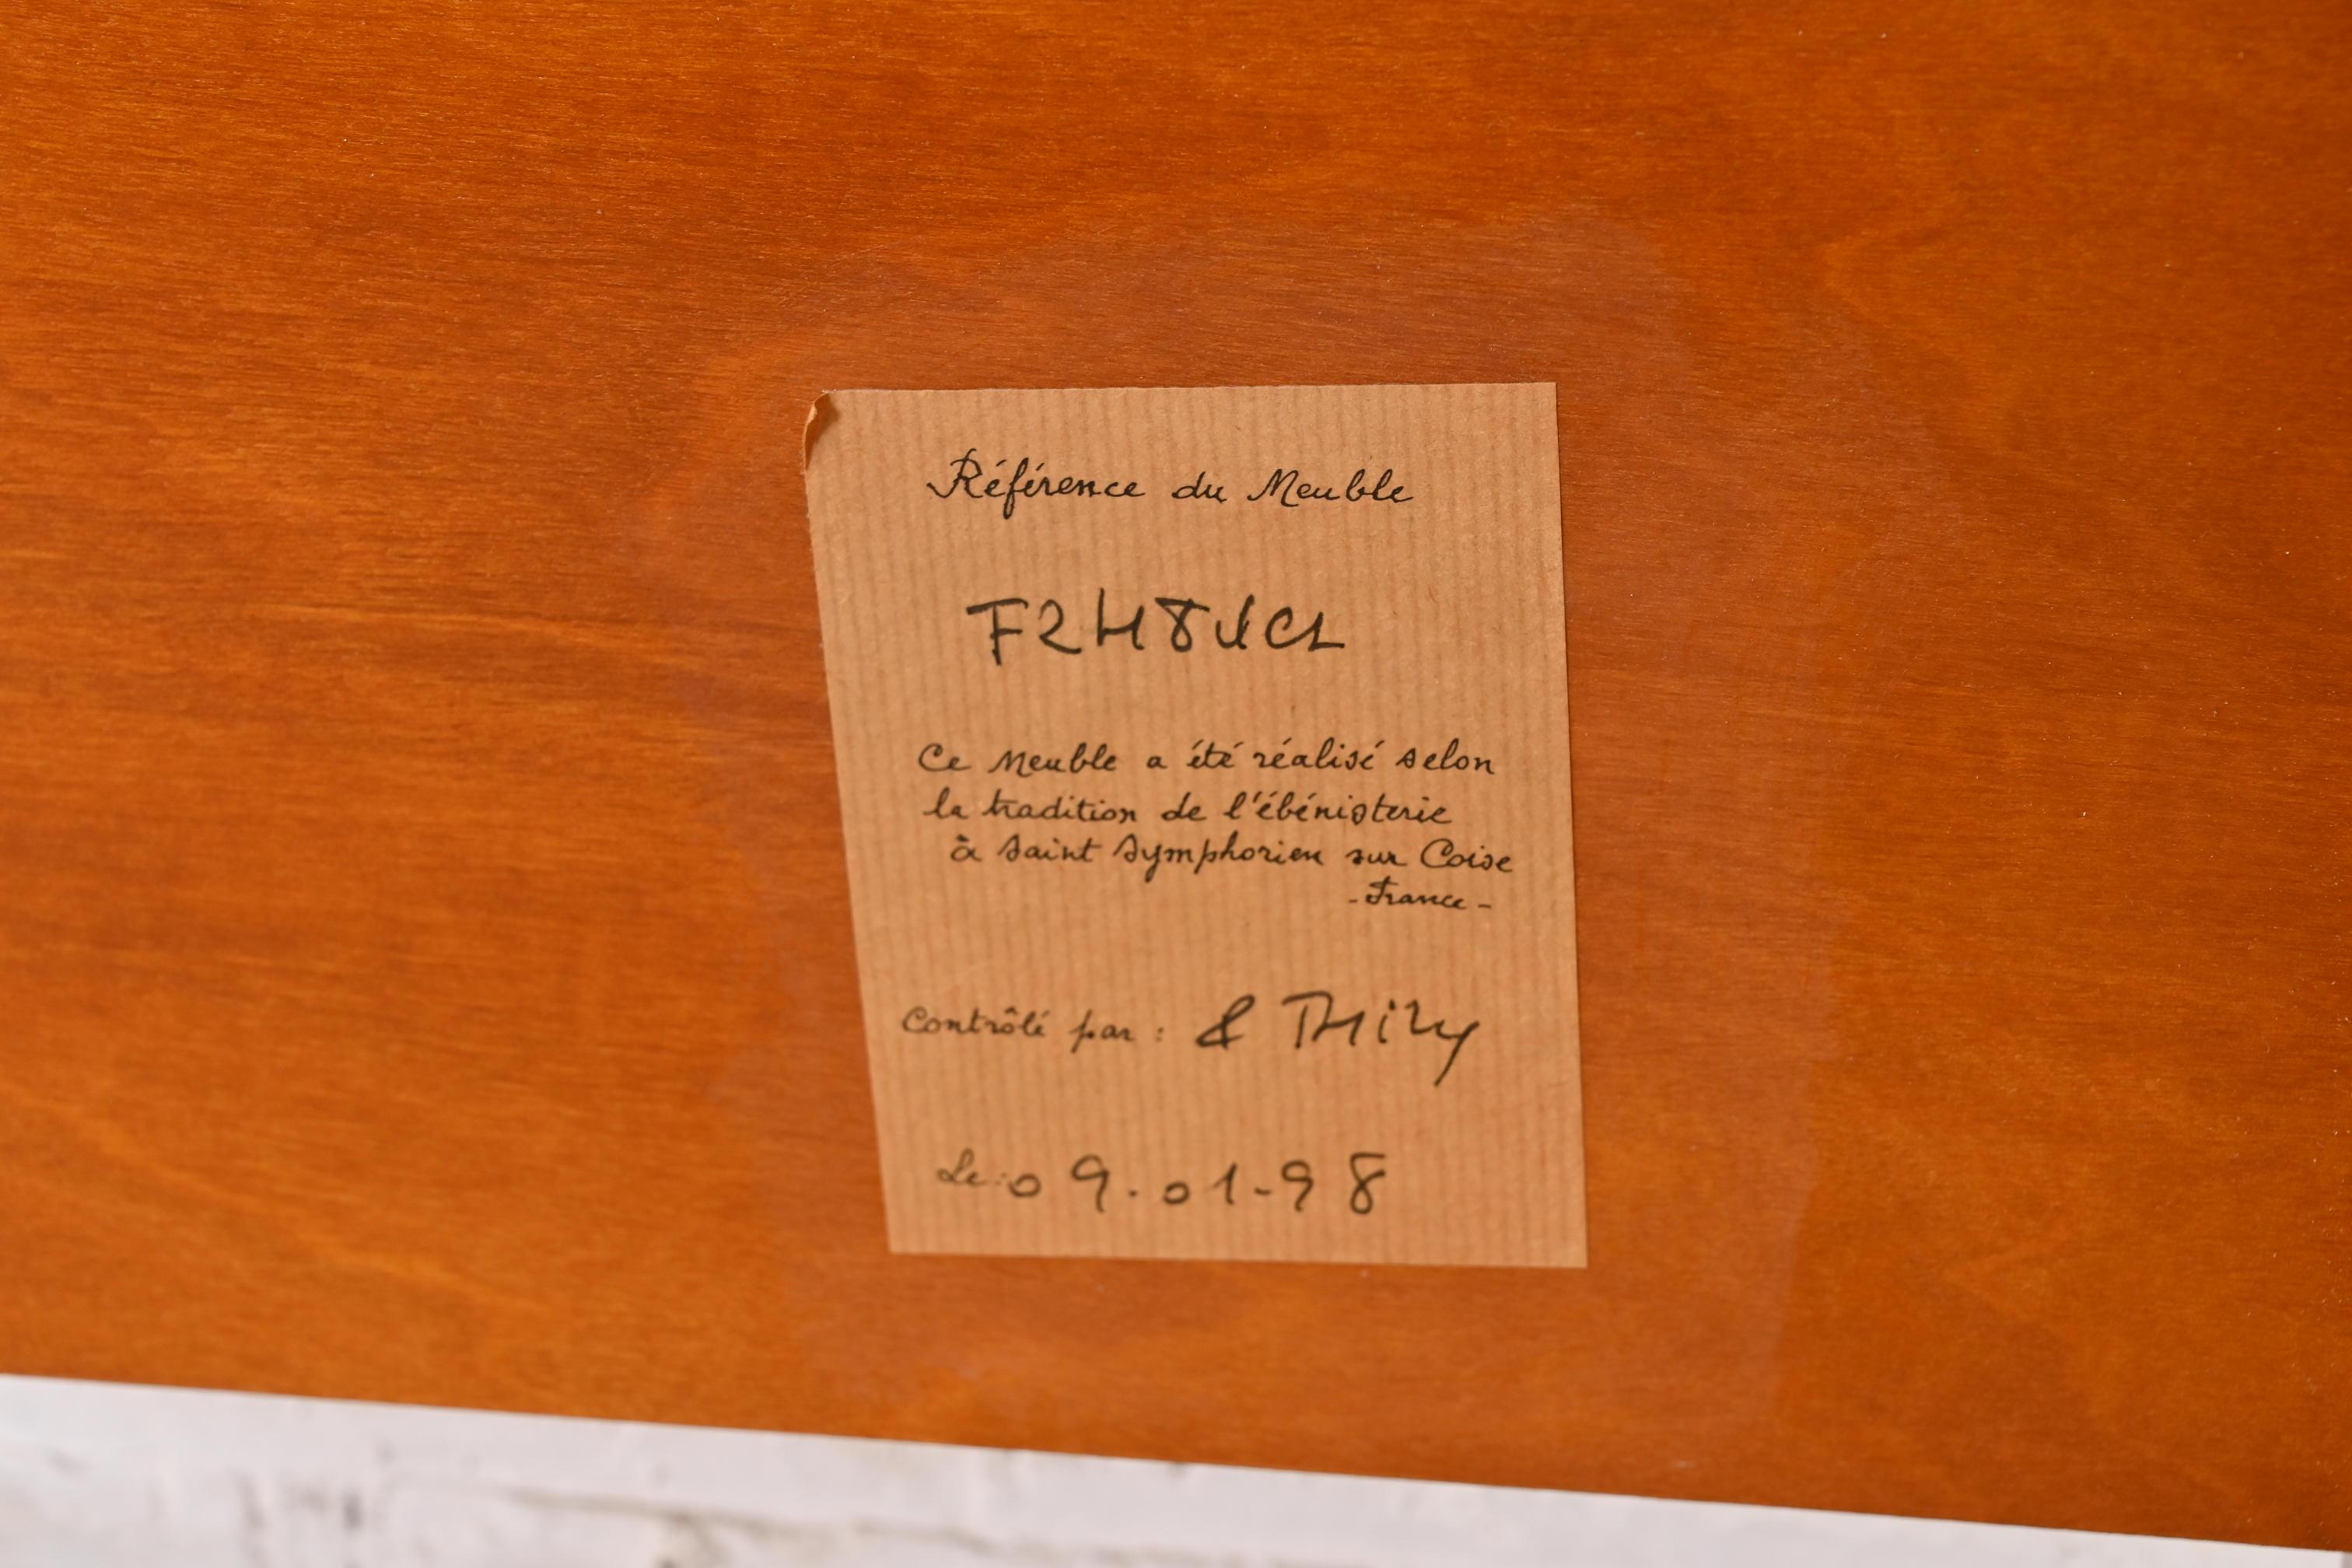 Référence du Meuble
Ce Meuble a été réalisé selon
la tradition de l'ébénisterie
à Saint Symphorien sur Coise
- France -
Contrôlé par : & Thiry
Le : 09.01-98